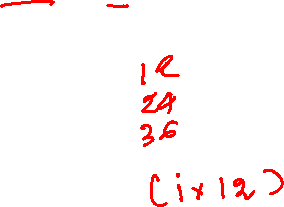 12
24
36
(i x 12)